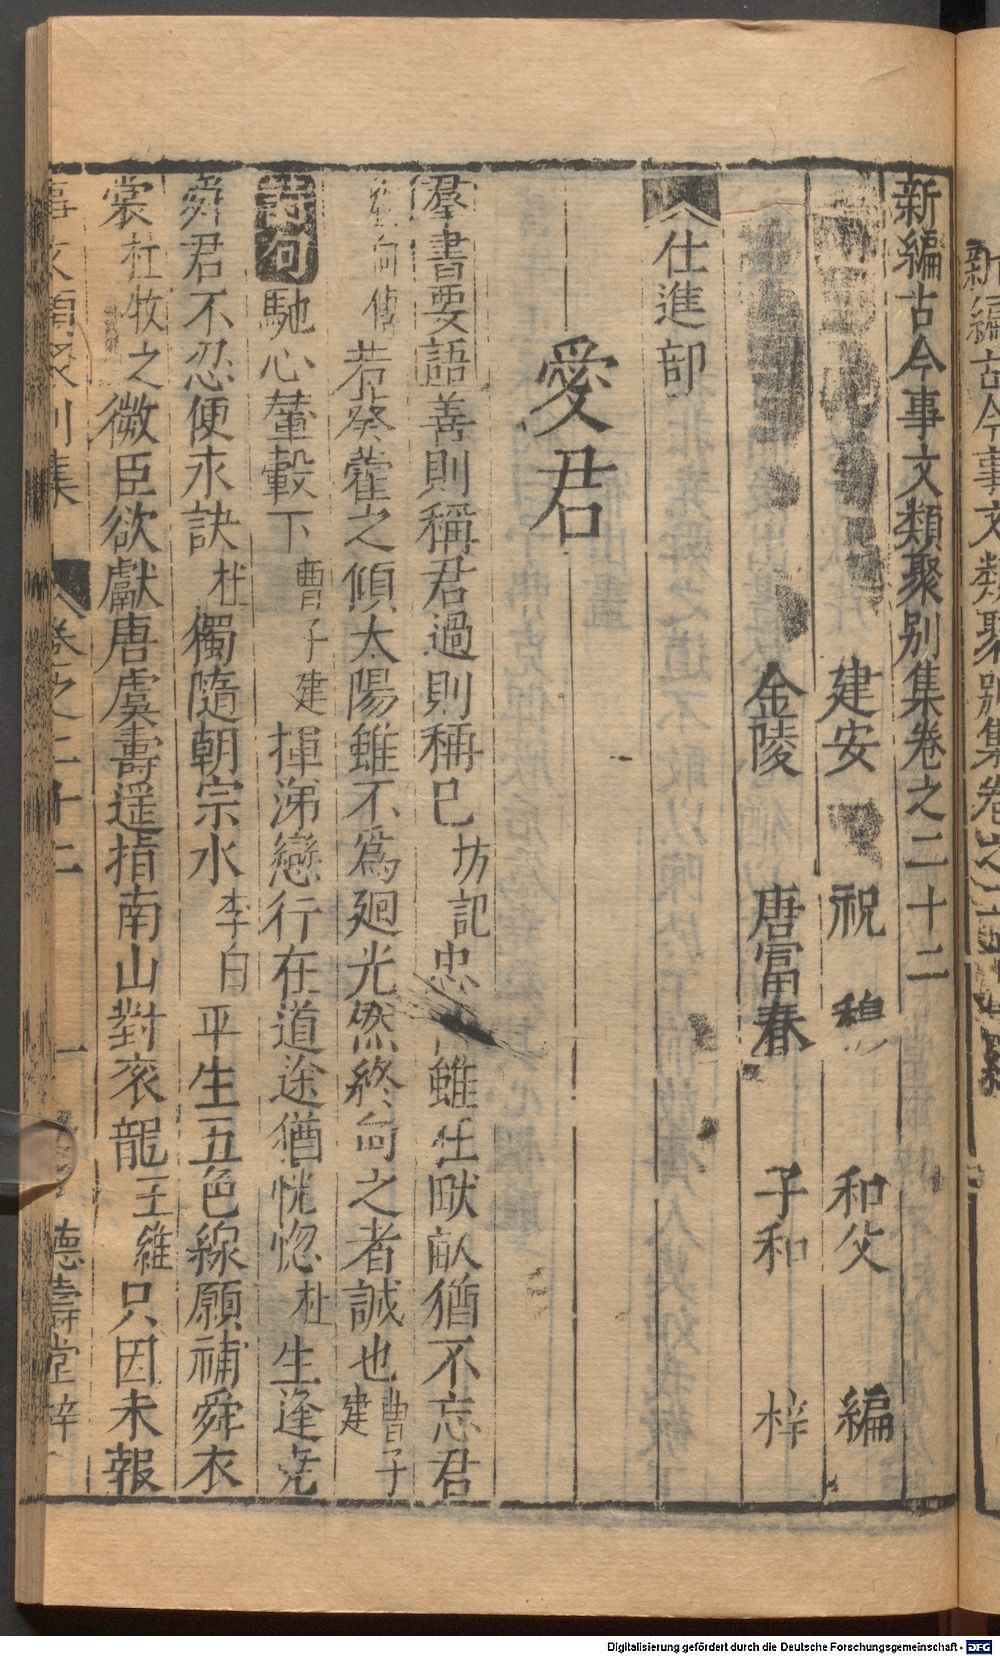 新編古今事文類聚别集卷之二十二
建安 祝 穆 和父 編
金陵 唐富春 子和 梓
仕進部
愛君
羣書要語善則稱君過則稱已坊記忠 雖在畎畝猶不忘君
向傳若葵藿之傾太陽雖不爲廻光然終向之者誠也曹子建
詩句馳心輦轂下曹子建揮涕戀行在道途猶恍惚杜生逢堯
舜君不忍便永訣杜獨隨朝宗水李白平生五色線願補舜衣
裳杜牧之微臣欲獻唐虞壽遥指南山對衮龍王維只因未報
事文類聚别集 卷之二十二 一 德壽堂梓
新編古今事文類聚别集卷之
Digitalisierung gefördert durch die Deutsche Forschungsgemeinschaft - DFG